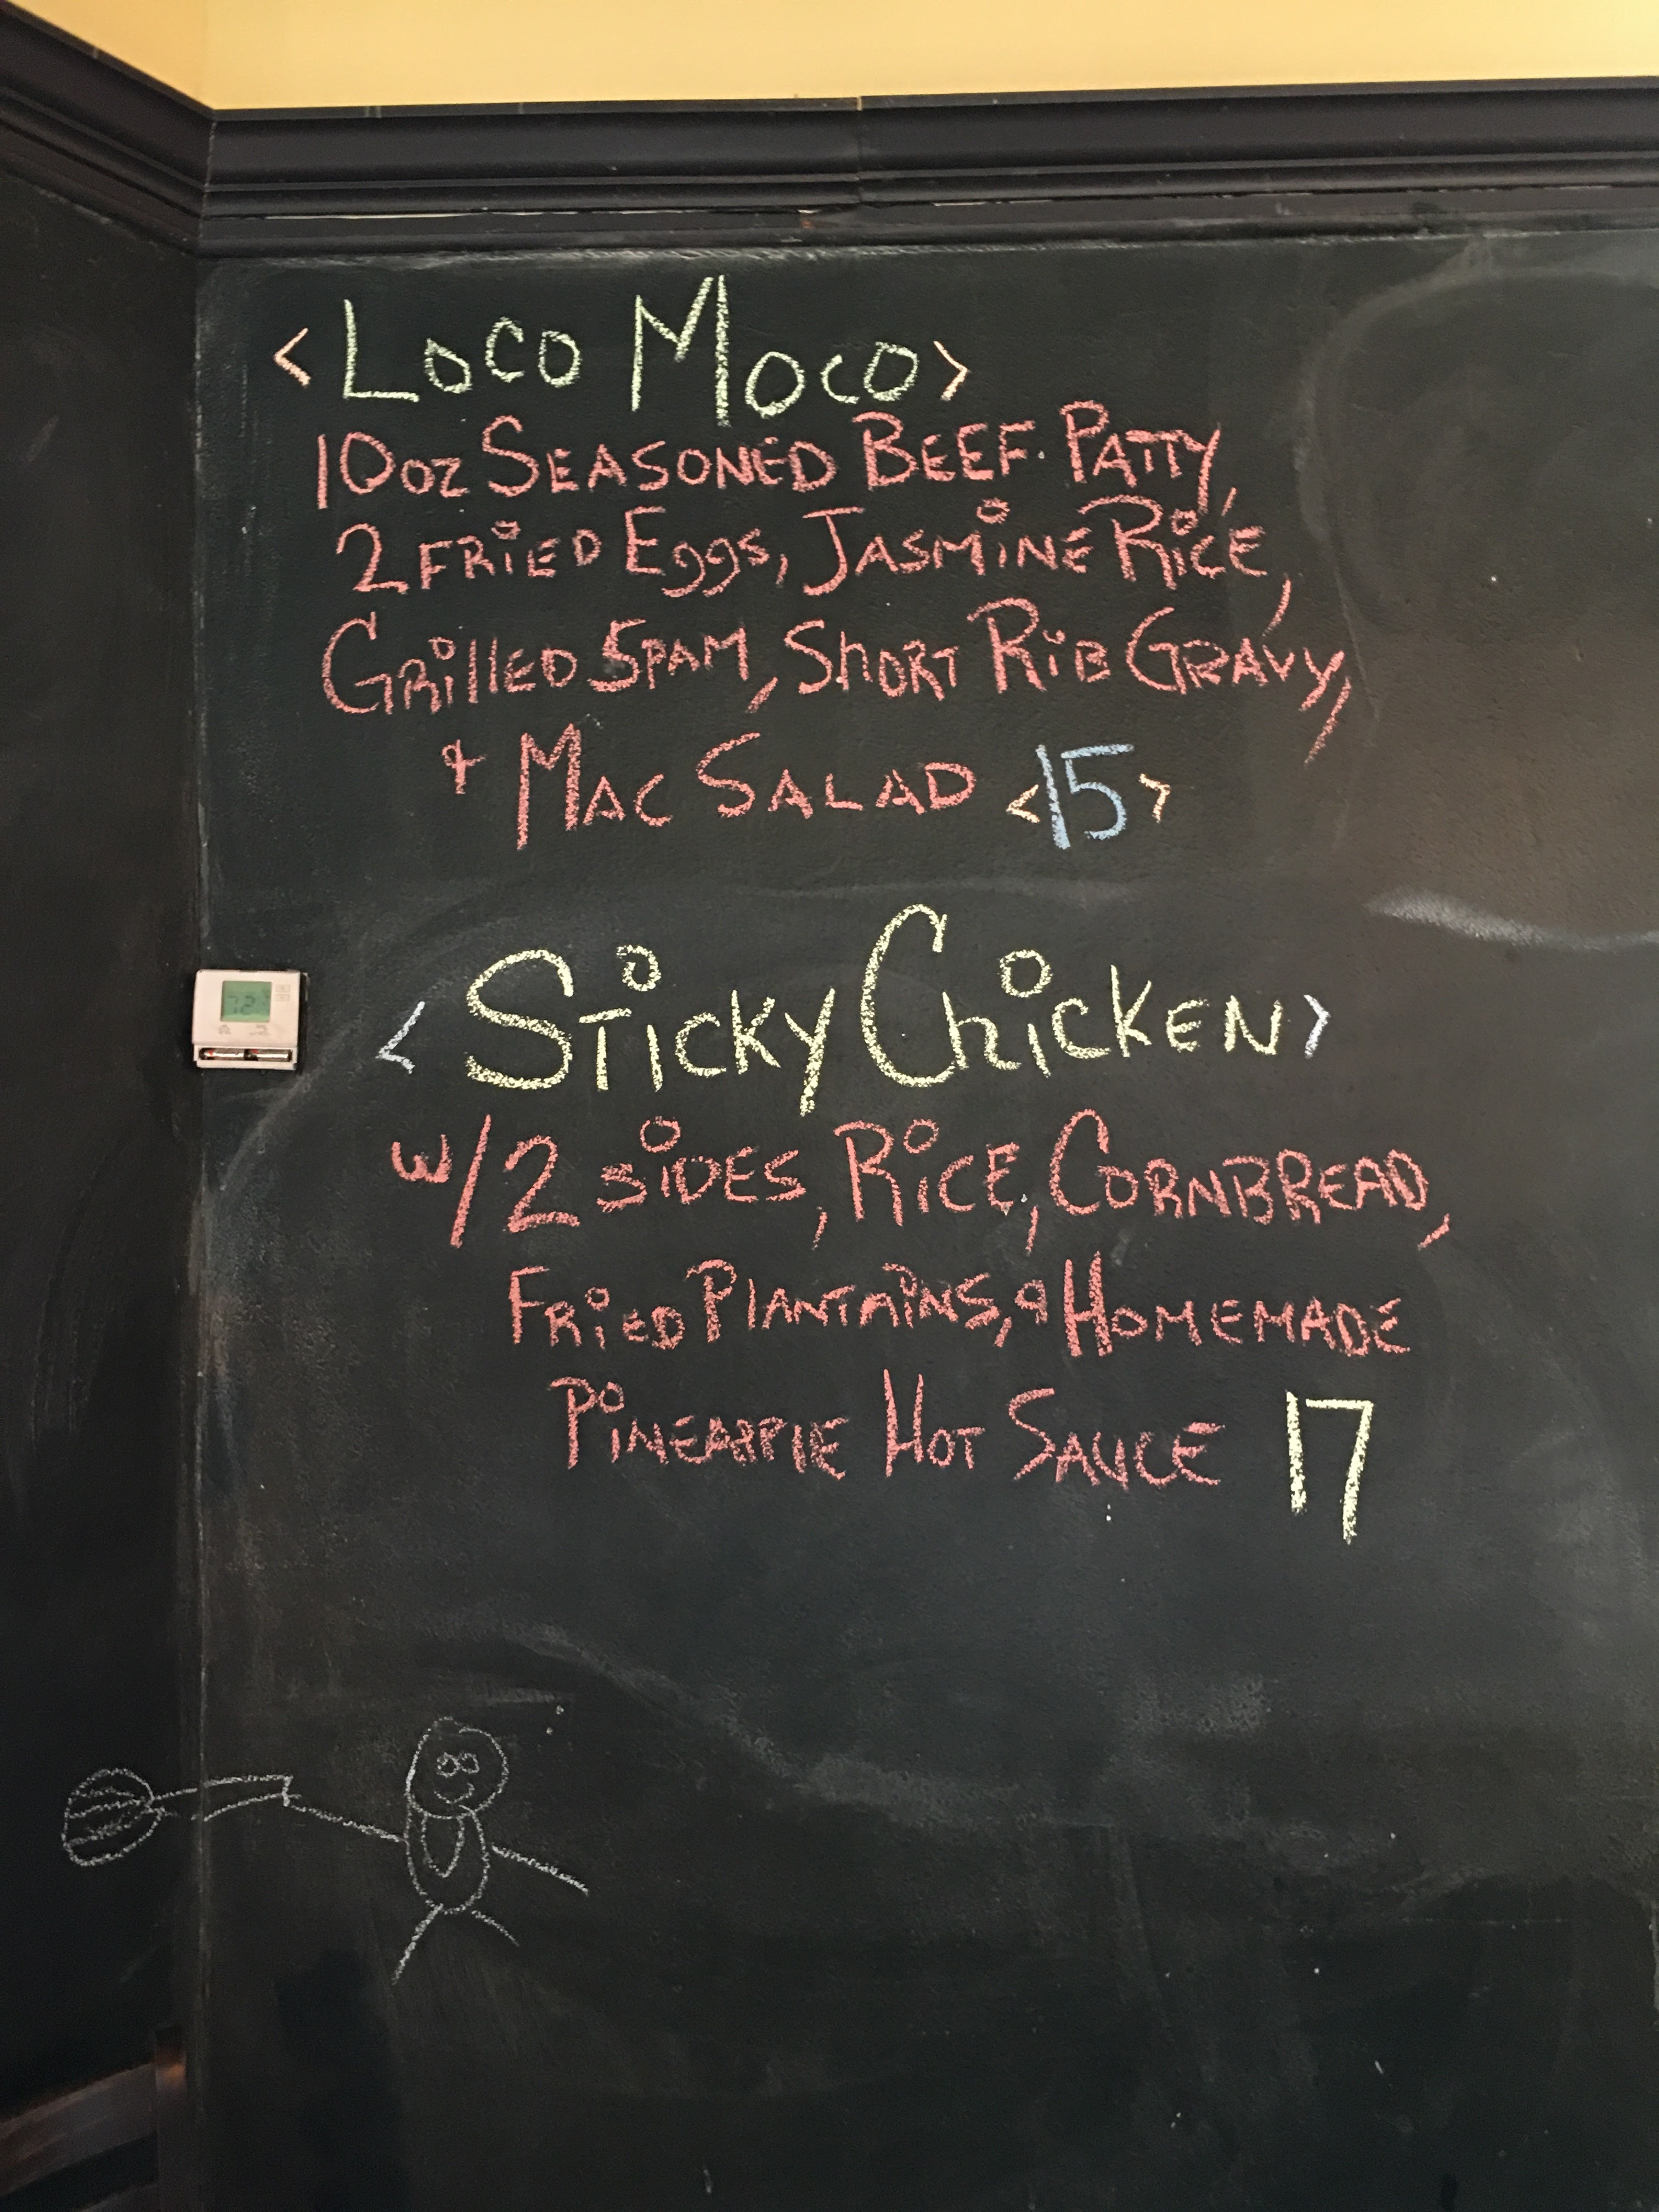 <Loco Moco>
10oz Seasoned Beef Patty,
2 Fried Eggs, Jasmine Rice,
Grilled Spam, Short Rib Gravy,
& Mac Salad <15>
72
<Sticky Chicken>
w/2 sides, Rice, Cornbread,
Fried Plantains, & Homemade
Pineapple Hot Sauce 17